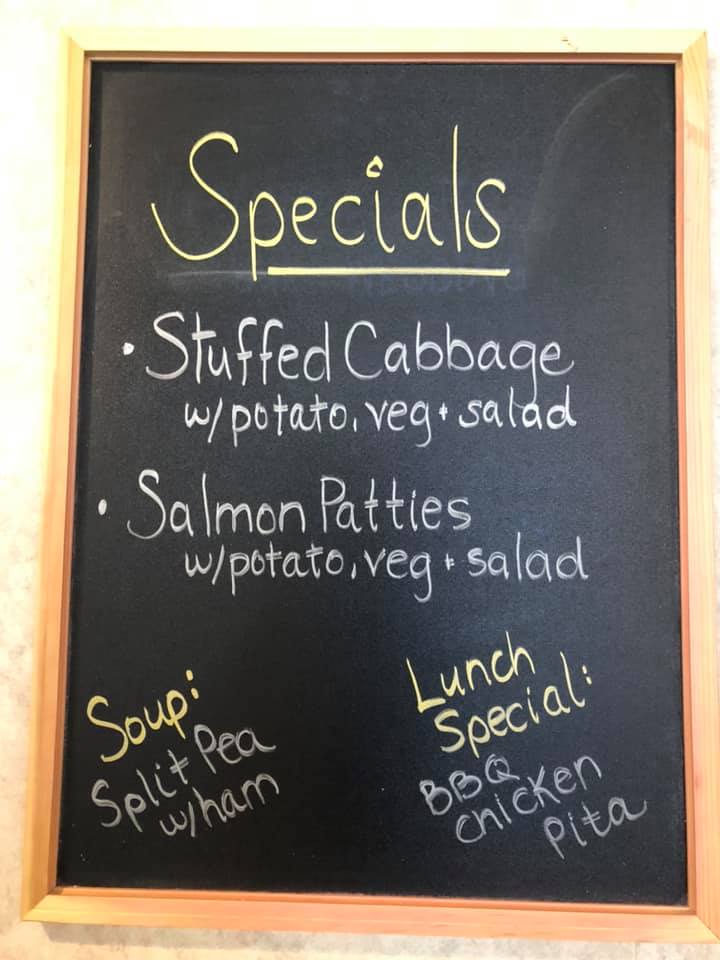 Specials
• Stuffed Cabbage
w/potato, veg + salad
• Salmon Patties
w/potato, veg + salad
Soup:
Split Pea
w/ham
Lunch
Special:
BBQ
chicken
pita